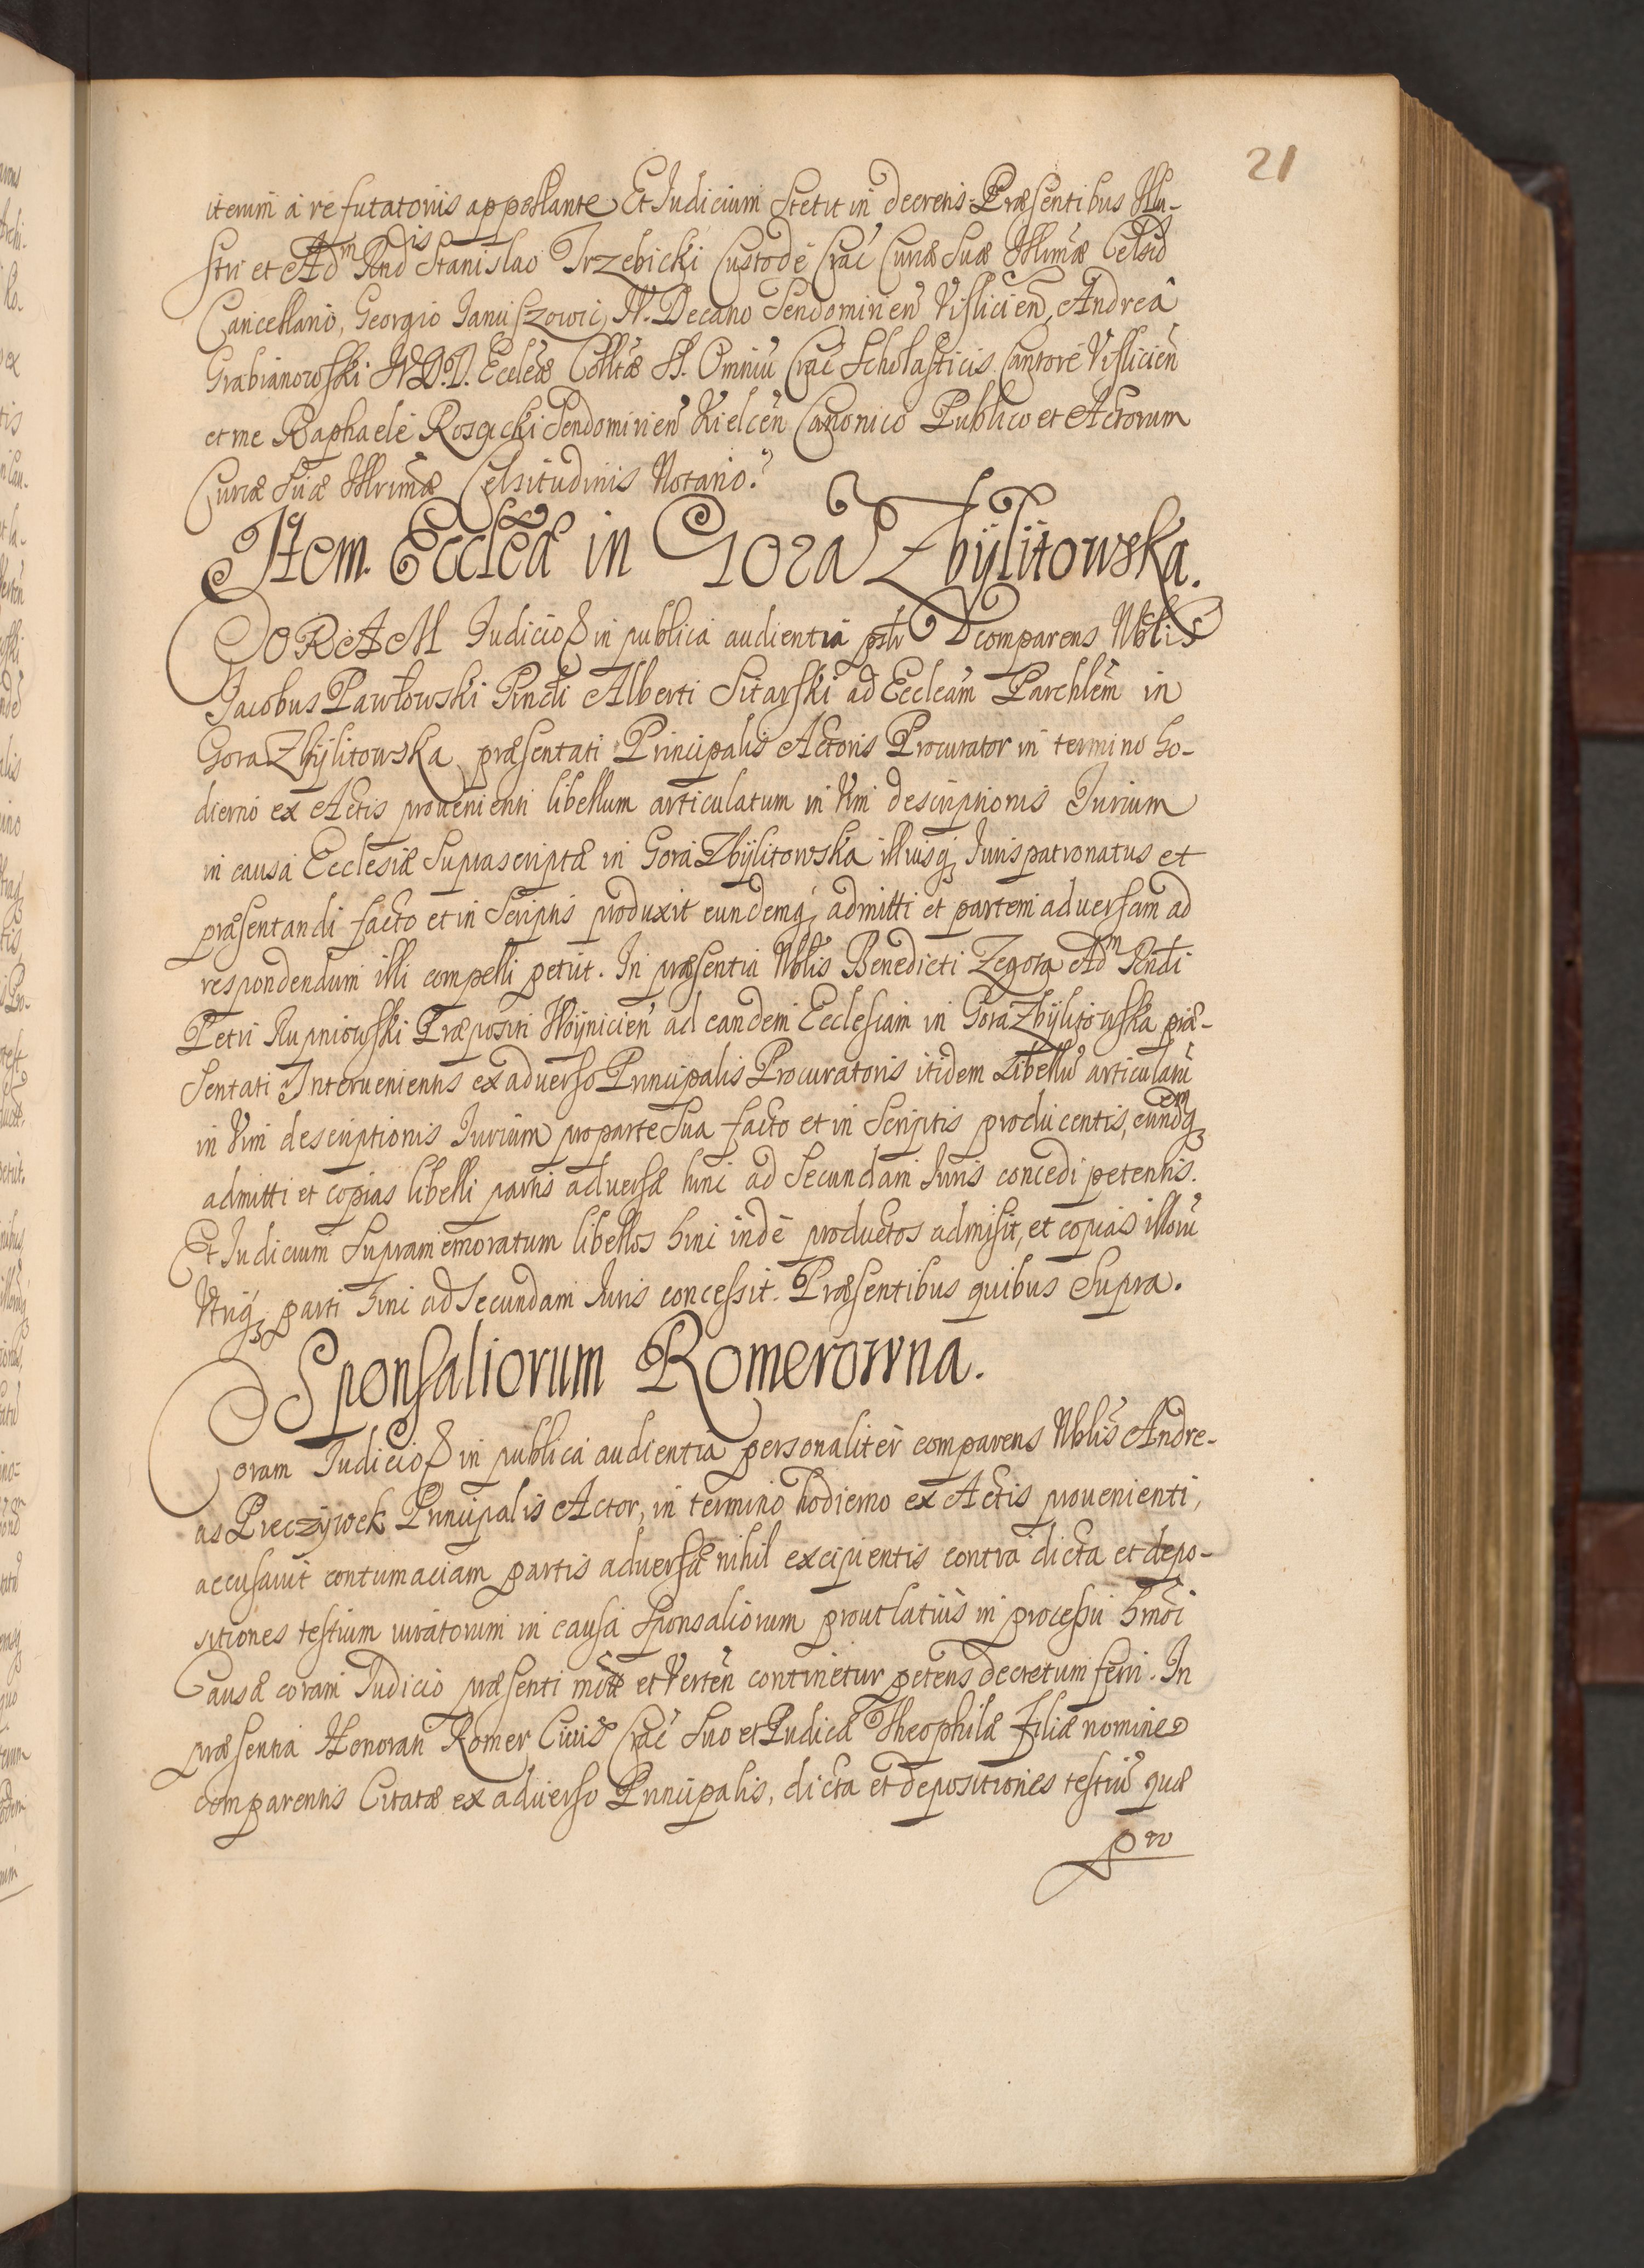 21
iterum à refutatoriis appellante Et Iudicium Stetit in decretis. Præsentibus Illu-
stri et Adm Rndis Stanislao Trzebicki Custode Crac Curiæ Suæ Illrmæ Celsid
Cancellario, Georgio Januszowic, V. Decano Sendomirien Vislicien, Andreâ
Grabianowski V.D.D. Eccleæ Colltæ SS. Omniũ Crac Scholasticis Cantore Vislicien
et me Raphaele Rosacki Sendomirien Kielcen Canonico Publico et Actorum
Curiæ Suæ Illrimæ Celsitudinis Notario.
Item Eccleã in Gora Zbÿlitowska.
CORAM Iudicio in publica audientia comparens Nblis
Jacobus Pawłowski Alberti Sitarski ad Eccleam Parchlem in
Gora Zbÿlitowska præsentati Principalis Actoris Procurator in termino ho-
dierno ex Actis provenienti libellum articulatum in Vim descriptionis Iurium
in causa Ecclesiæ Suprascriptæ in Gora Zbÿlitowska illiusq Iurispatronatus et
præsentandi facto et in Scriptis produxit eundemq admitti et partem adversam ad
respondendum illi compelli petiit. In præsentia Nblis Benedicti Zegota Adm Rndi
Petri Rupniowski Præpositi Woÿnicien ad eandem Ecclesiam in Gora Zbÿlitowska præ-
sentati Intervenientis ex adverso Principalis Procuratoris itidem Libellũ articulatũ
in Vim descriptionis Iurium pro parte Sua facto et in Scriptis producentis, eundemq
admitti et copias libelli partis adversæ hinc ad Secundam Iuris concedi petentis.
Et Iudicium Supramemoratum libellos hinc indè productos admisit, et copias illorũ
Vtriq parti hinc ad Secundam Iuris concessit. Præsentibus quibus Supra.
Sponsaliorum Romerowna.
Coram Iudicio in publica audientia personaliter comparens Nblis Andre-
as Preczÿwek Principalis Actor, in termino hodierno ex Actis provenienti,
accusavit contumaciam partis adversæ nihil excipientis contra dicta et depo-
sitiones testium iuratorum in causa Sponsaliorum prout latius in processu hmoi
Causæ coram Iudicio præsenti motæ et Verten continetur petens decretum ferri. In
præsentia Honorati Romer Civis Crac Suo et Pudicæ Theophilæ Filiæ nomine
comparentis Citatæ ex adverso Principalis, dicta et depositiones testiũ quæ